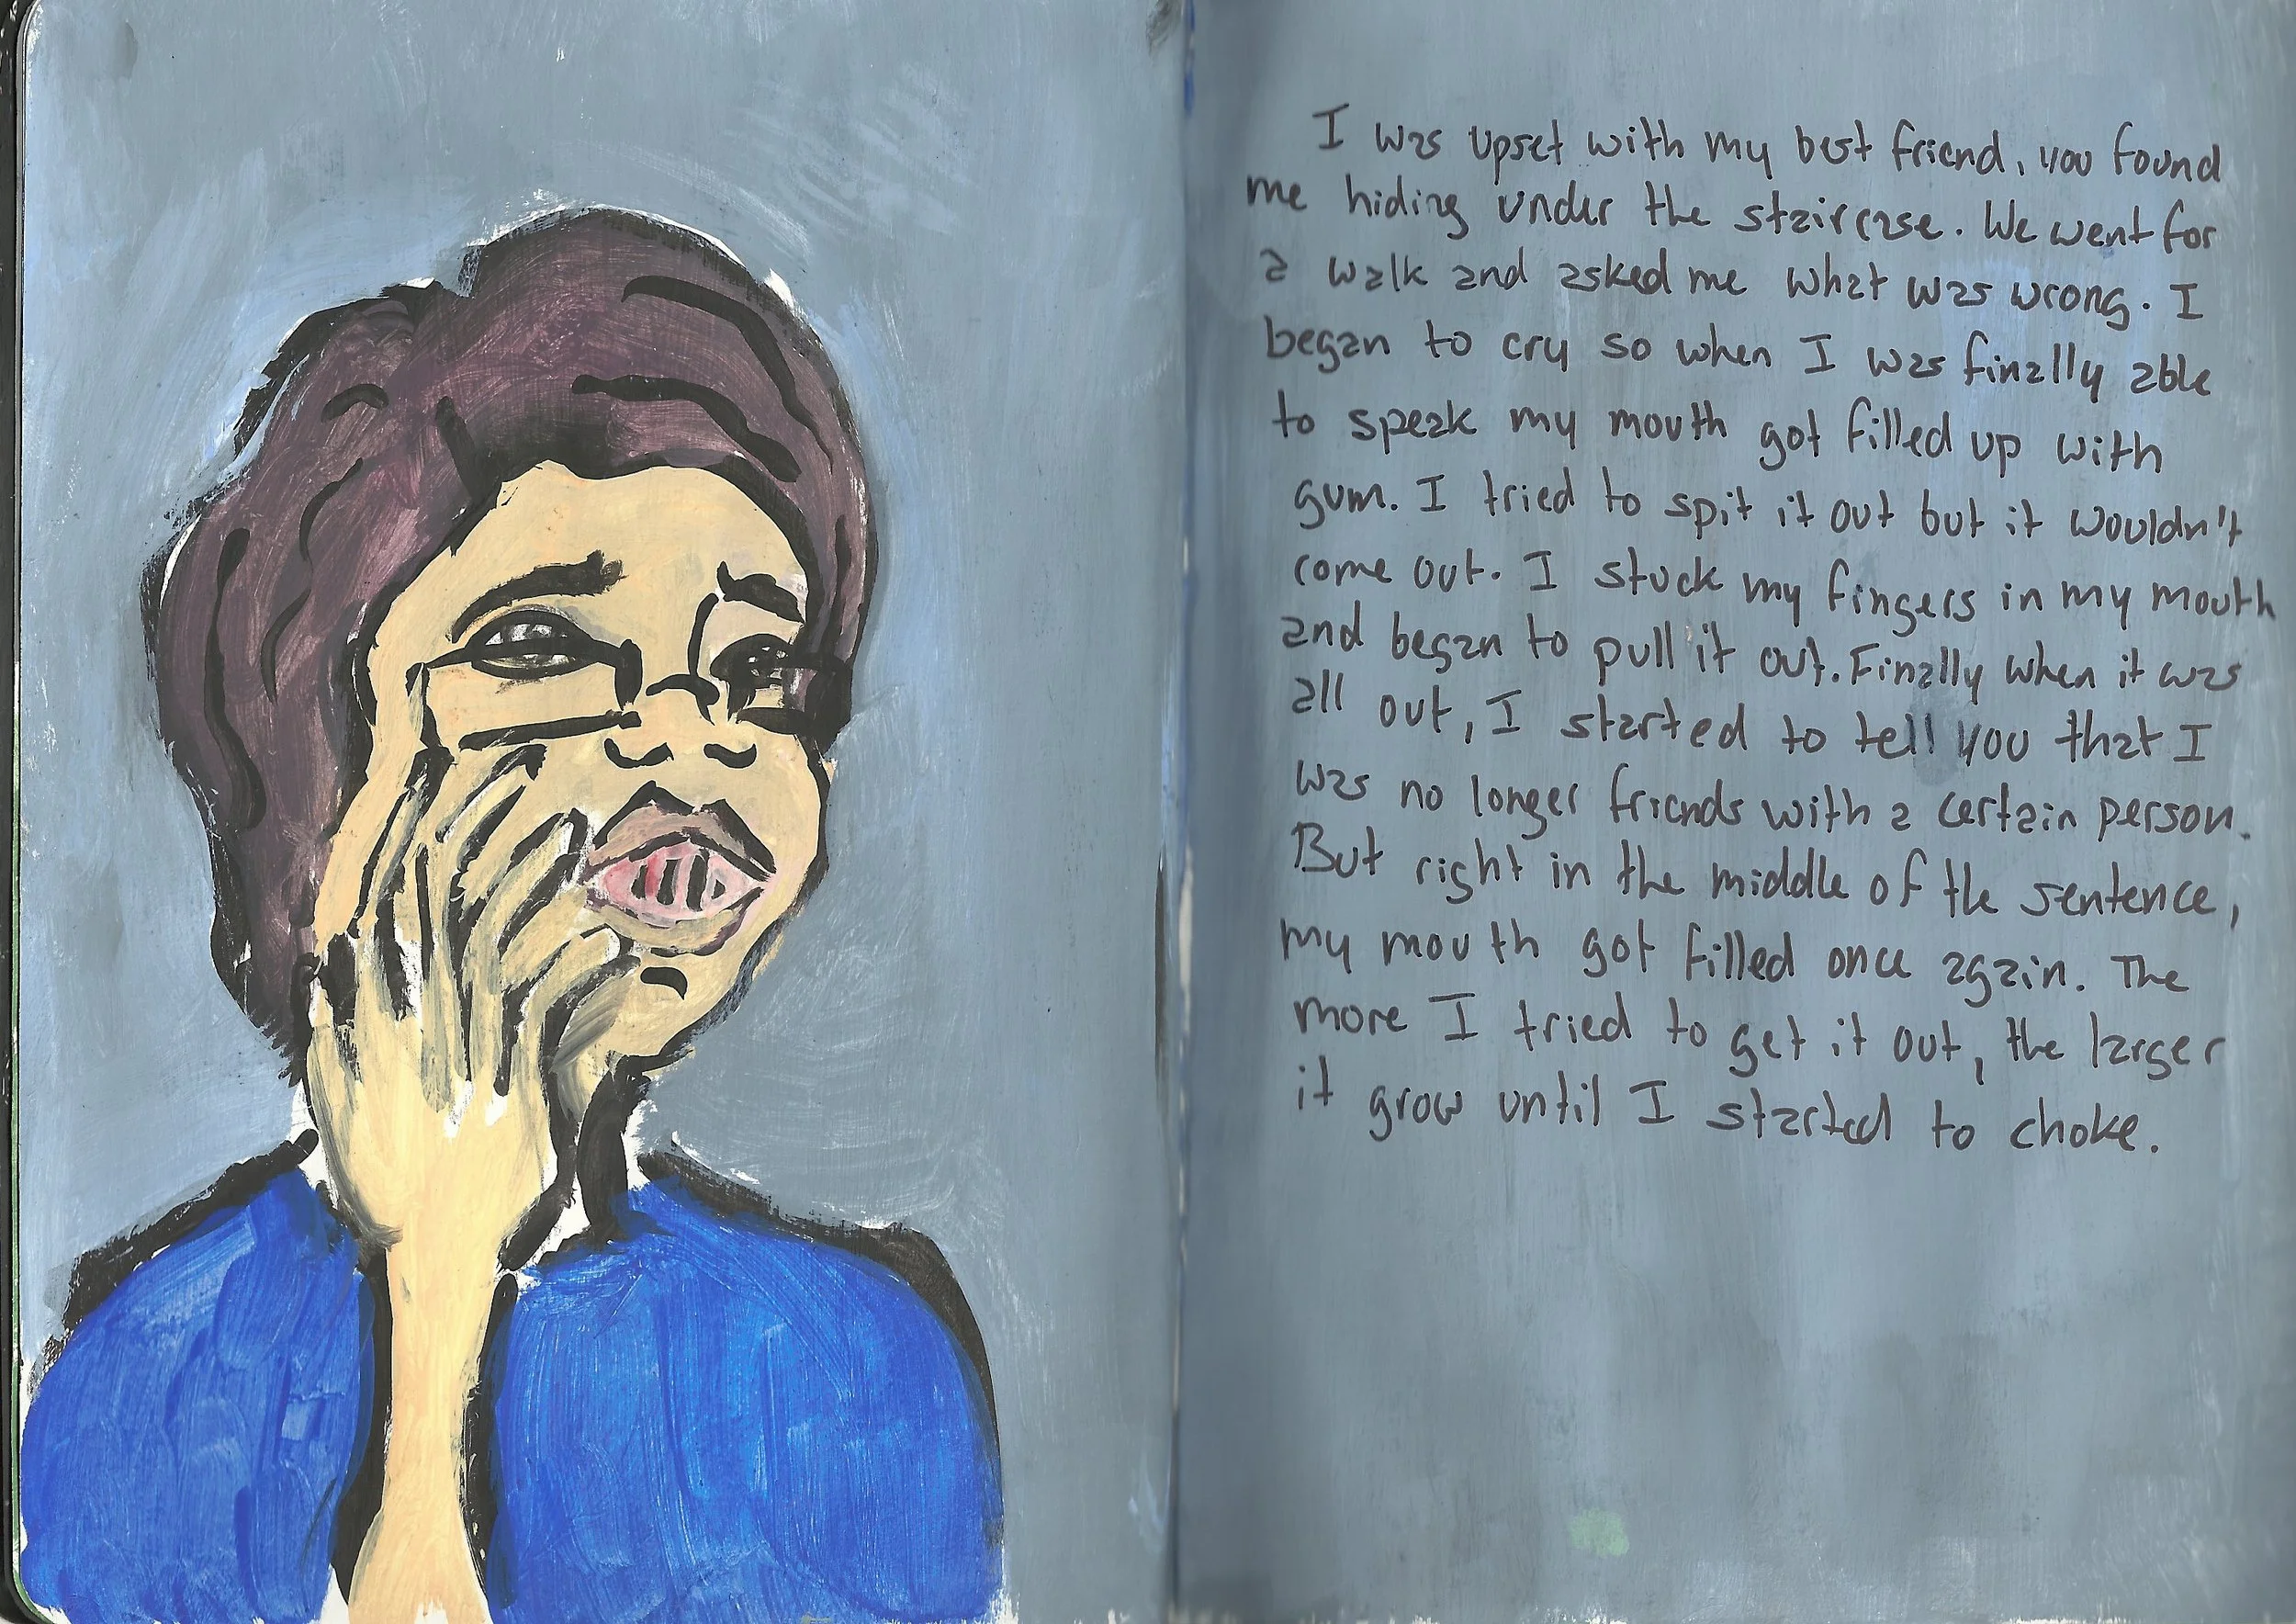 I was upset with my best friend, you found
me hiding under the staircase. We went for
a walk and asked me what was wrong. I
began to cry so when I was finally able
to speak my mouth got filled up with
gum. I tried to spit it out but it wouldn't
come out. I stuck my fingers in my mouth
and began to pull it out. Finally when it was
all out, I started to tell you that I
was no longer friends with a certain person.
But right in the middle of the sentence,
my mouth got filled once again. The
more I tried to get it out, the larger
it grow until I started to choke.